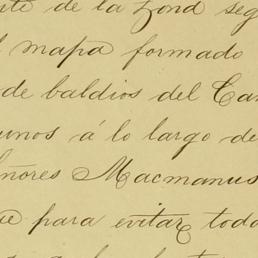 de la Zona seg
mapa formado
de baldios del Can
unos á lo largo de
eñores Macmanus
para evitar todo